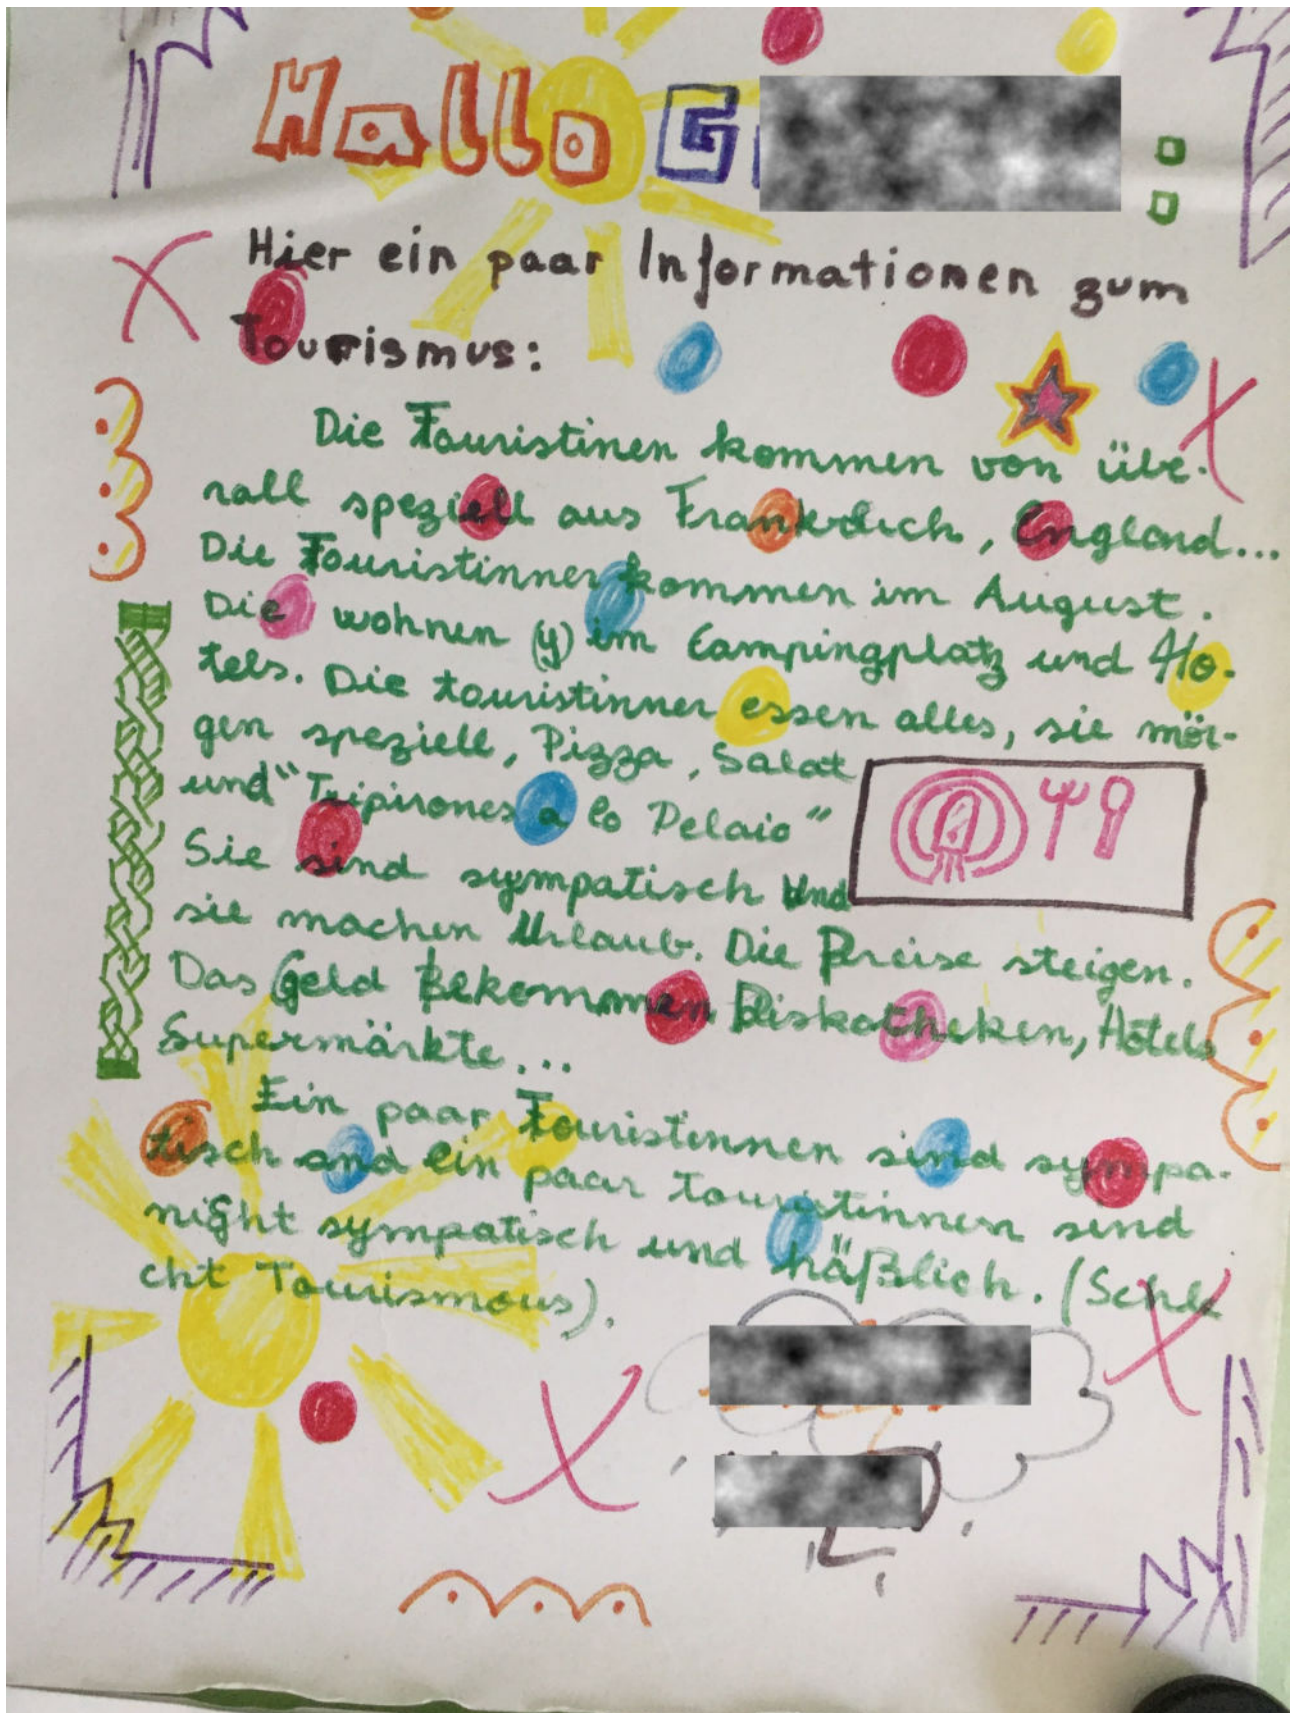 Hallo G
Hier ein paar Informationen zum
Tourismus:
Die Touristinen kommen von übe-
rall speziell aus Frankreich, England...
Die Touristinner kommen im August.
Die wohnen (y) im Campingplatz und Ho-
tels. Die touristinner essen alles, sie mör-
gen speziell, Pizza, Salat
und "Txipirones a lo Pelaio"
Sie sind sympatisch und
sie machen Urlaub. Die Preise steigen.
Das Geld Bekommen Diskotheken, Hotels
Supermärkte...
Ein paar Touristinnen sind sympa-
tisch und ein paar touristinnen sind
night sympatisch und häßlich. (Schle
cht Tourismous).